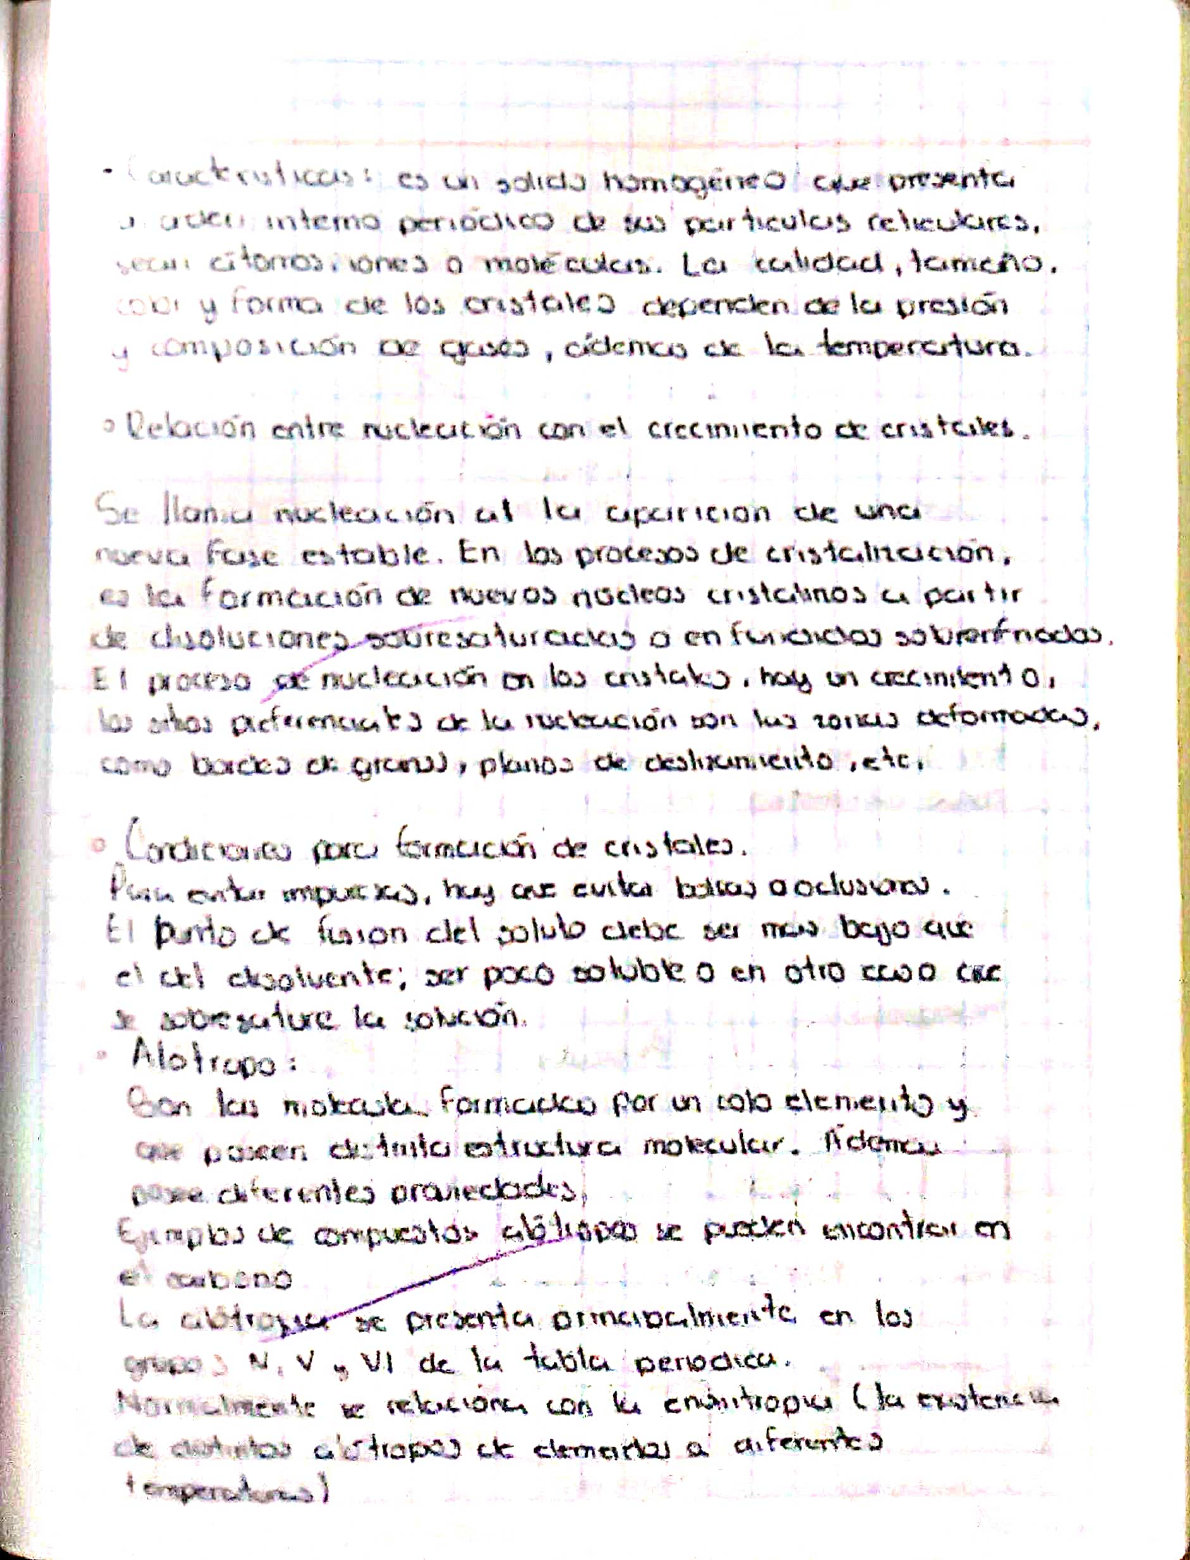 · Características: es un solido homogéneo que presenta
orden interno periódico de sus particulas reticulares,
sean átomos, iones o moléculas. La calidad, tamaño,
color y forma de los cristales dependen de la presión
y composición de gases, ádemas de la temperatura.
° Relación entre nucleación con el crecimiento de cristales.
Se llama nucleación at la aparicion de una
nueva fase estable. En los procesos de cristalización,
es la formación de nuevos núcleos cristalinos a partir
de disoluciones sobresaturadas o en fundidas sobrenfriadas.
El proceso de nucleación en los cristales, hay un crecimiento,
los sitios preferenciales de la nucleación son las zonas deformadas,
como bordes de granos, planos de deslizamiento, etc,
° Condiciones para formación de cristales.
Para evitar impurezas, hay que evitar bolsas o oclusiones.
El punto de fusion del soluto debe ser mas bajo que
el del disolvente; ser poco soluble o en otro caso que
se sobresature la solución.
° Alotropo:
Son las moleculas formadas por un solo elemento y
que poseen distinta estructura molecular. Ádemas
posee diferentes propiedades,
Ejemplos de compuestos alótropos se pueden encontrar en
el carbono
La alótropia se presenta principalmente en los
grupos IV, V y VI de la tabla periodica.
Normalmente se relaciona con la enántropia (la existencia
de distintos alótropos de elementos a diferentes
temperaturas)